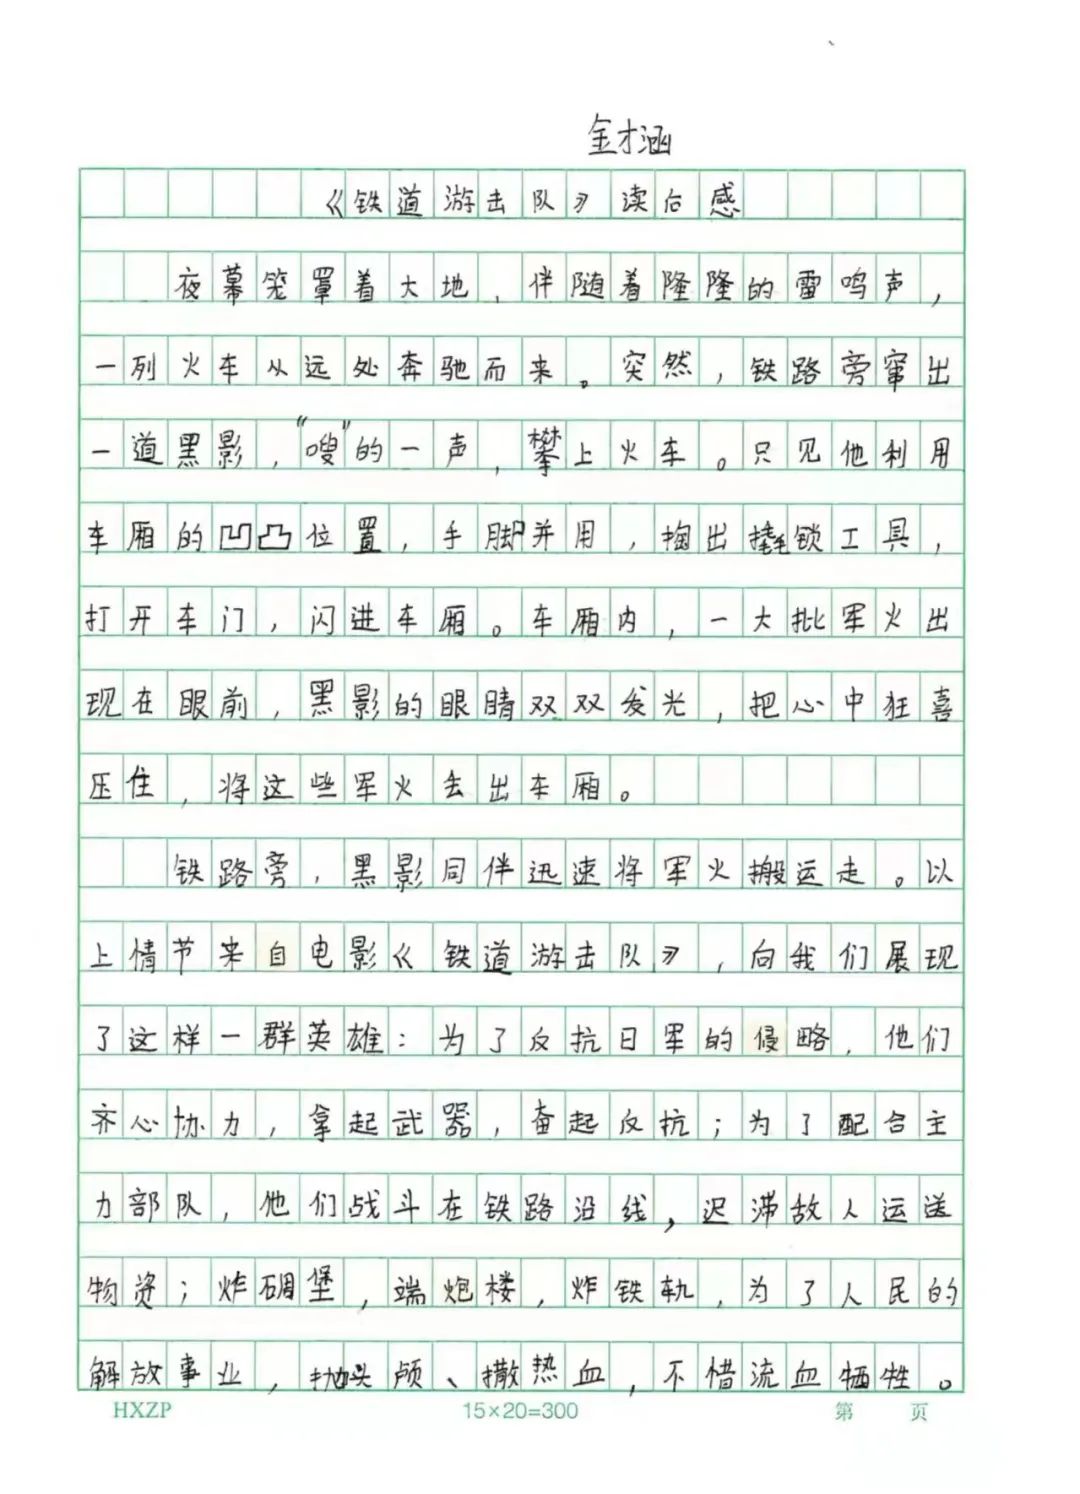 金才涵
《铁道游击队》读后感
夜幕笼罩着大地，伴随着隆隆的雷鸣声，
一列火车从远处奔驰而来。突然，铁路旁窜出
一道黑影，“嗖”的一声，攀上火车。只见他利用
车厢的凹凸位置，手脚并用，掏出撬锁工具，
打开车门，闪进车厢。车厢内，一大批军火出
现在眼前，黑影的眼睛双双发光，把心中狂喜
压住，将这些军火丢出车厢。
铁路旁，黑影同伴迅速将军火搬运走。以
上情节来自电影《铁道游击队》，向我们展现
了这样一群英雄：为了反抗日军的侵略，他们
齐心协力，拿起武器，奋起反抗；为了配合主
力部队，他们战斗在铁路沿线，迟滞敌人运送
物资；炸碉堡，端炮楼，炸铁轨，为了人民的
解放事业，抛头颅、撒热血，不惜流血牺牲。
HXZP 15×20=300 第 页